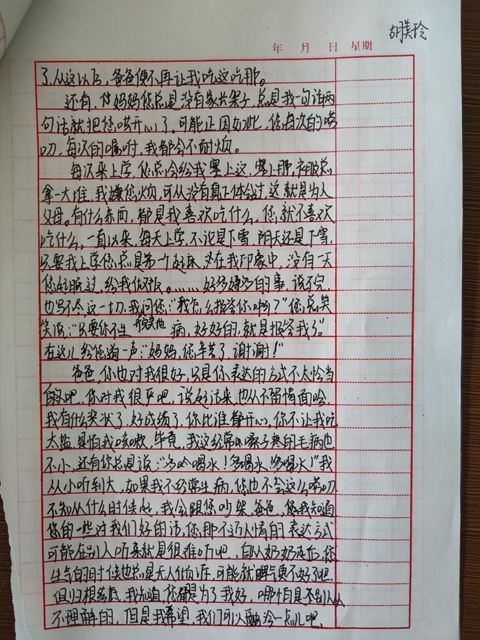 胡美玲
年 月 日 星期
了,从这以后,爸爸便不再让我吃这吃那。
还有,你妈妈您总是没有家长架子,总是我一句话两
句话就把您哄开心了。可能正因如此,您每次的唠
叨,每次的嘱咐,我都会不耐烦。
每次来上学,您总会给我塞上这,塞那,衣服总
拿一大堆,我嫌您烦,可从没有真正体会过,这就是为人
父母。有什么东西,都是我喜欢吃什么,您就不喜欢
吃什么。一直以来,每天上学,不论是下雪,阴天还是下雪,
只要我上学您总是第一个起床,在我印象中,没有一天
您好睡过,给我做饭。……好多的事,说不完,
也写不尽这一切。我问您:"我怎么报答你啊?"您总笑
笑说:"只要你不生病,好好的,就是报答我了"
在这儿给您道一声:"妈妈,您辛苦了,谢谢!"
爸爸,你也对我很好,只是你表达的方式不太恰当
的吧,你对我很严吧,说起话来,也从不留情面哈,
我有什么奖状了,好成绩了,你比谁都开心,你不让我吃
太盐,是怕我咳嗽,毕竟,我这经常嗓子疼的毛病也
不小,还有你总是说:"多喝水!多喝水,多喝水!"我
从小听到大,如果我不经常生病,您也不会这么唠叨,
不知从什么时候起,我会跟您吵架,爸爸,您我知道
你的一些对我们好的话,您那不近人情的表达方式
可能在别人听来就是很难听吧,自从奶奶走后,您
生气的时候也总是无人依存,可能就脾气更不好了吧
但归根结底,我知道,您都是为了我好,哪怕是不被人
不理解的,但是我希望,我们可以融洽一点儿吧,